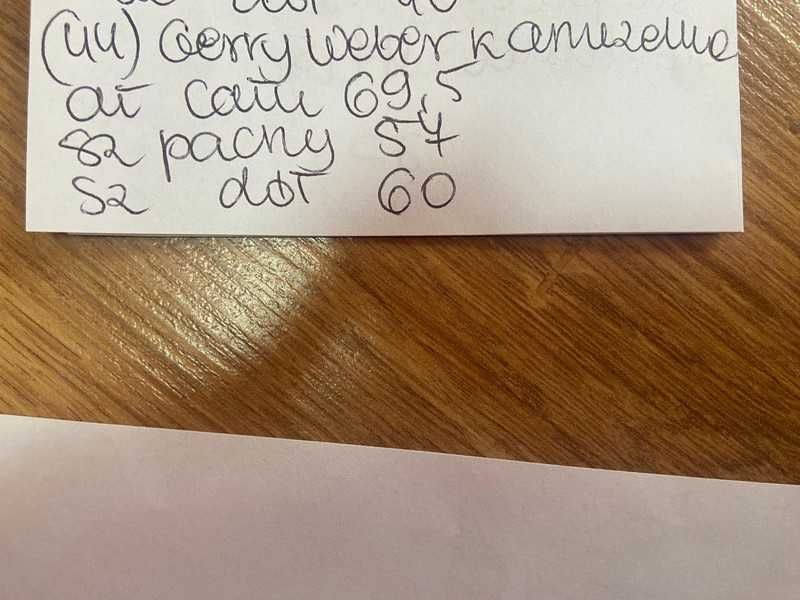 (44) Gerry Weber kamizelka
dł całk 69,5
sz pachy 57
sz dół 60